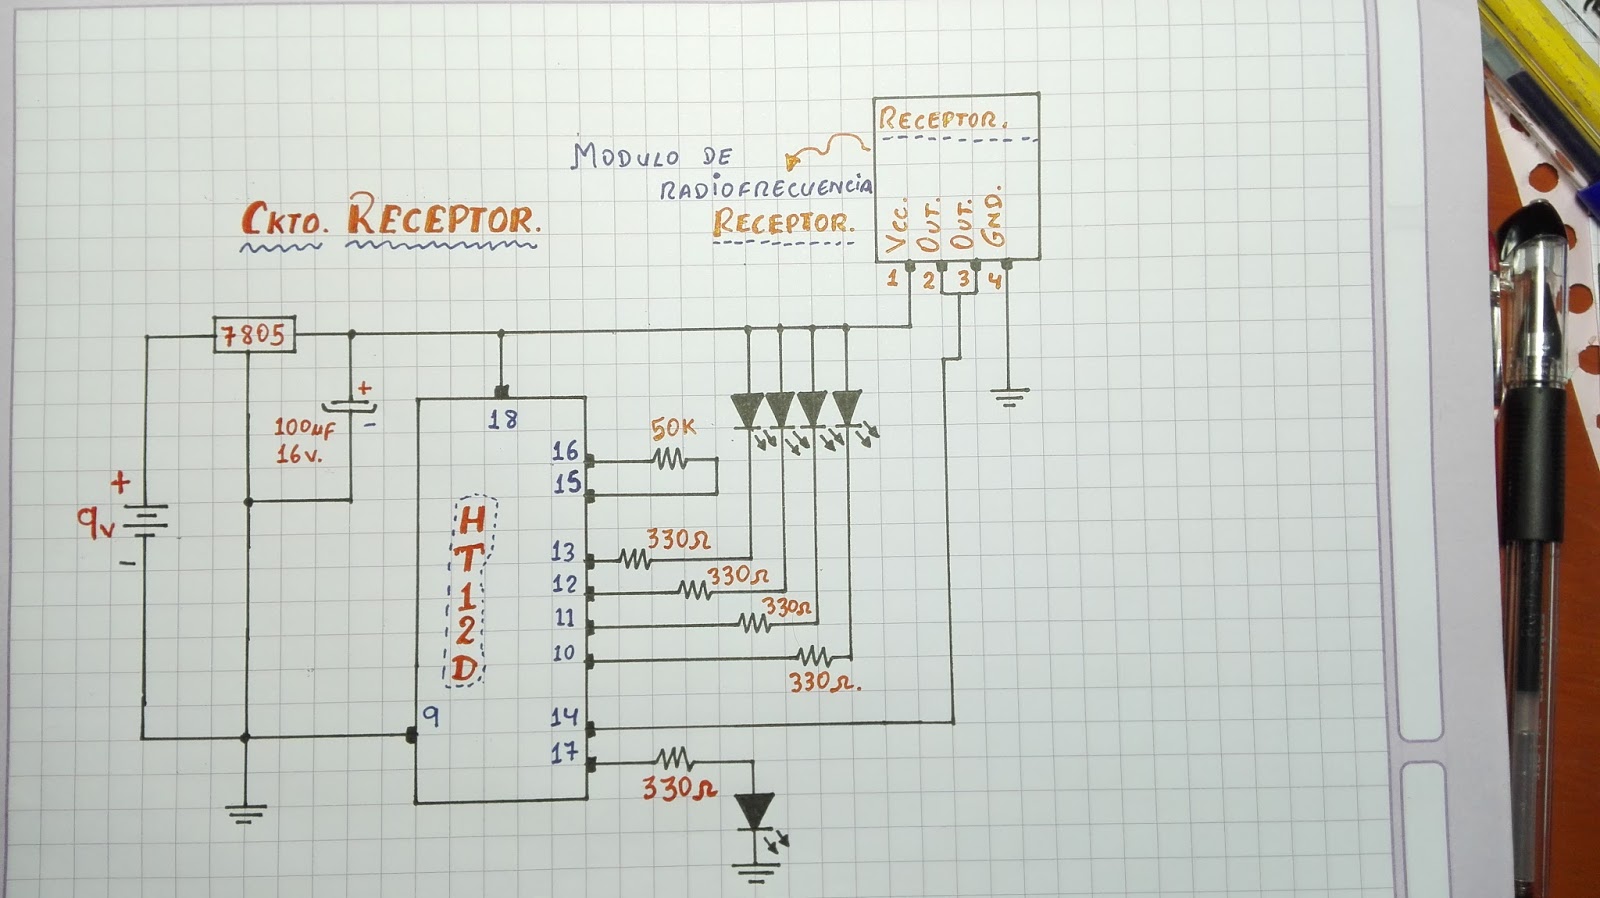 RECEPTOR.
MODULO DE
RADIOFRECUENCIA
RECEPTOR.
CKTO. RECEPTOR.
VCC.
OUT.
OUT.
GND.
1 2 3 4
7805
+
100µF
16v.
-
+
9v
-
18
16
15
50K
HT12D
13
330Ω
12
330Ω
11
330Ω
10
330Ω.
9
14
17
330Ω